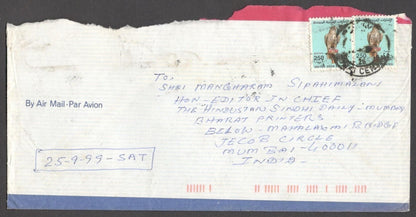 250
250
To,
SHRI MANGHARAM SIPAHIMALANI
HON-EDITOR IN CHIEF
THE HINDUSTAN SINDHI DAILY-MUMBAI
BHARAT PRINTERS
BELOW-MAHALAXMI BRIDGE
JECOB CIRCLE
MUMBAI-400011
INDIA-
By Air Mail-Par Avion
25-9-99-SAT